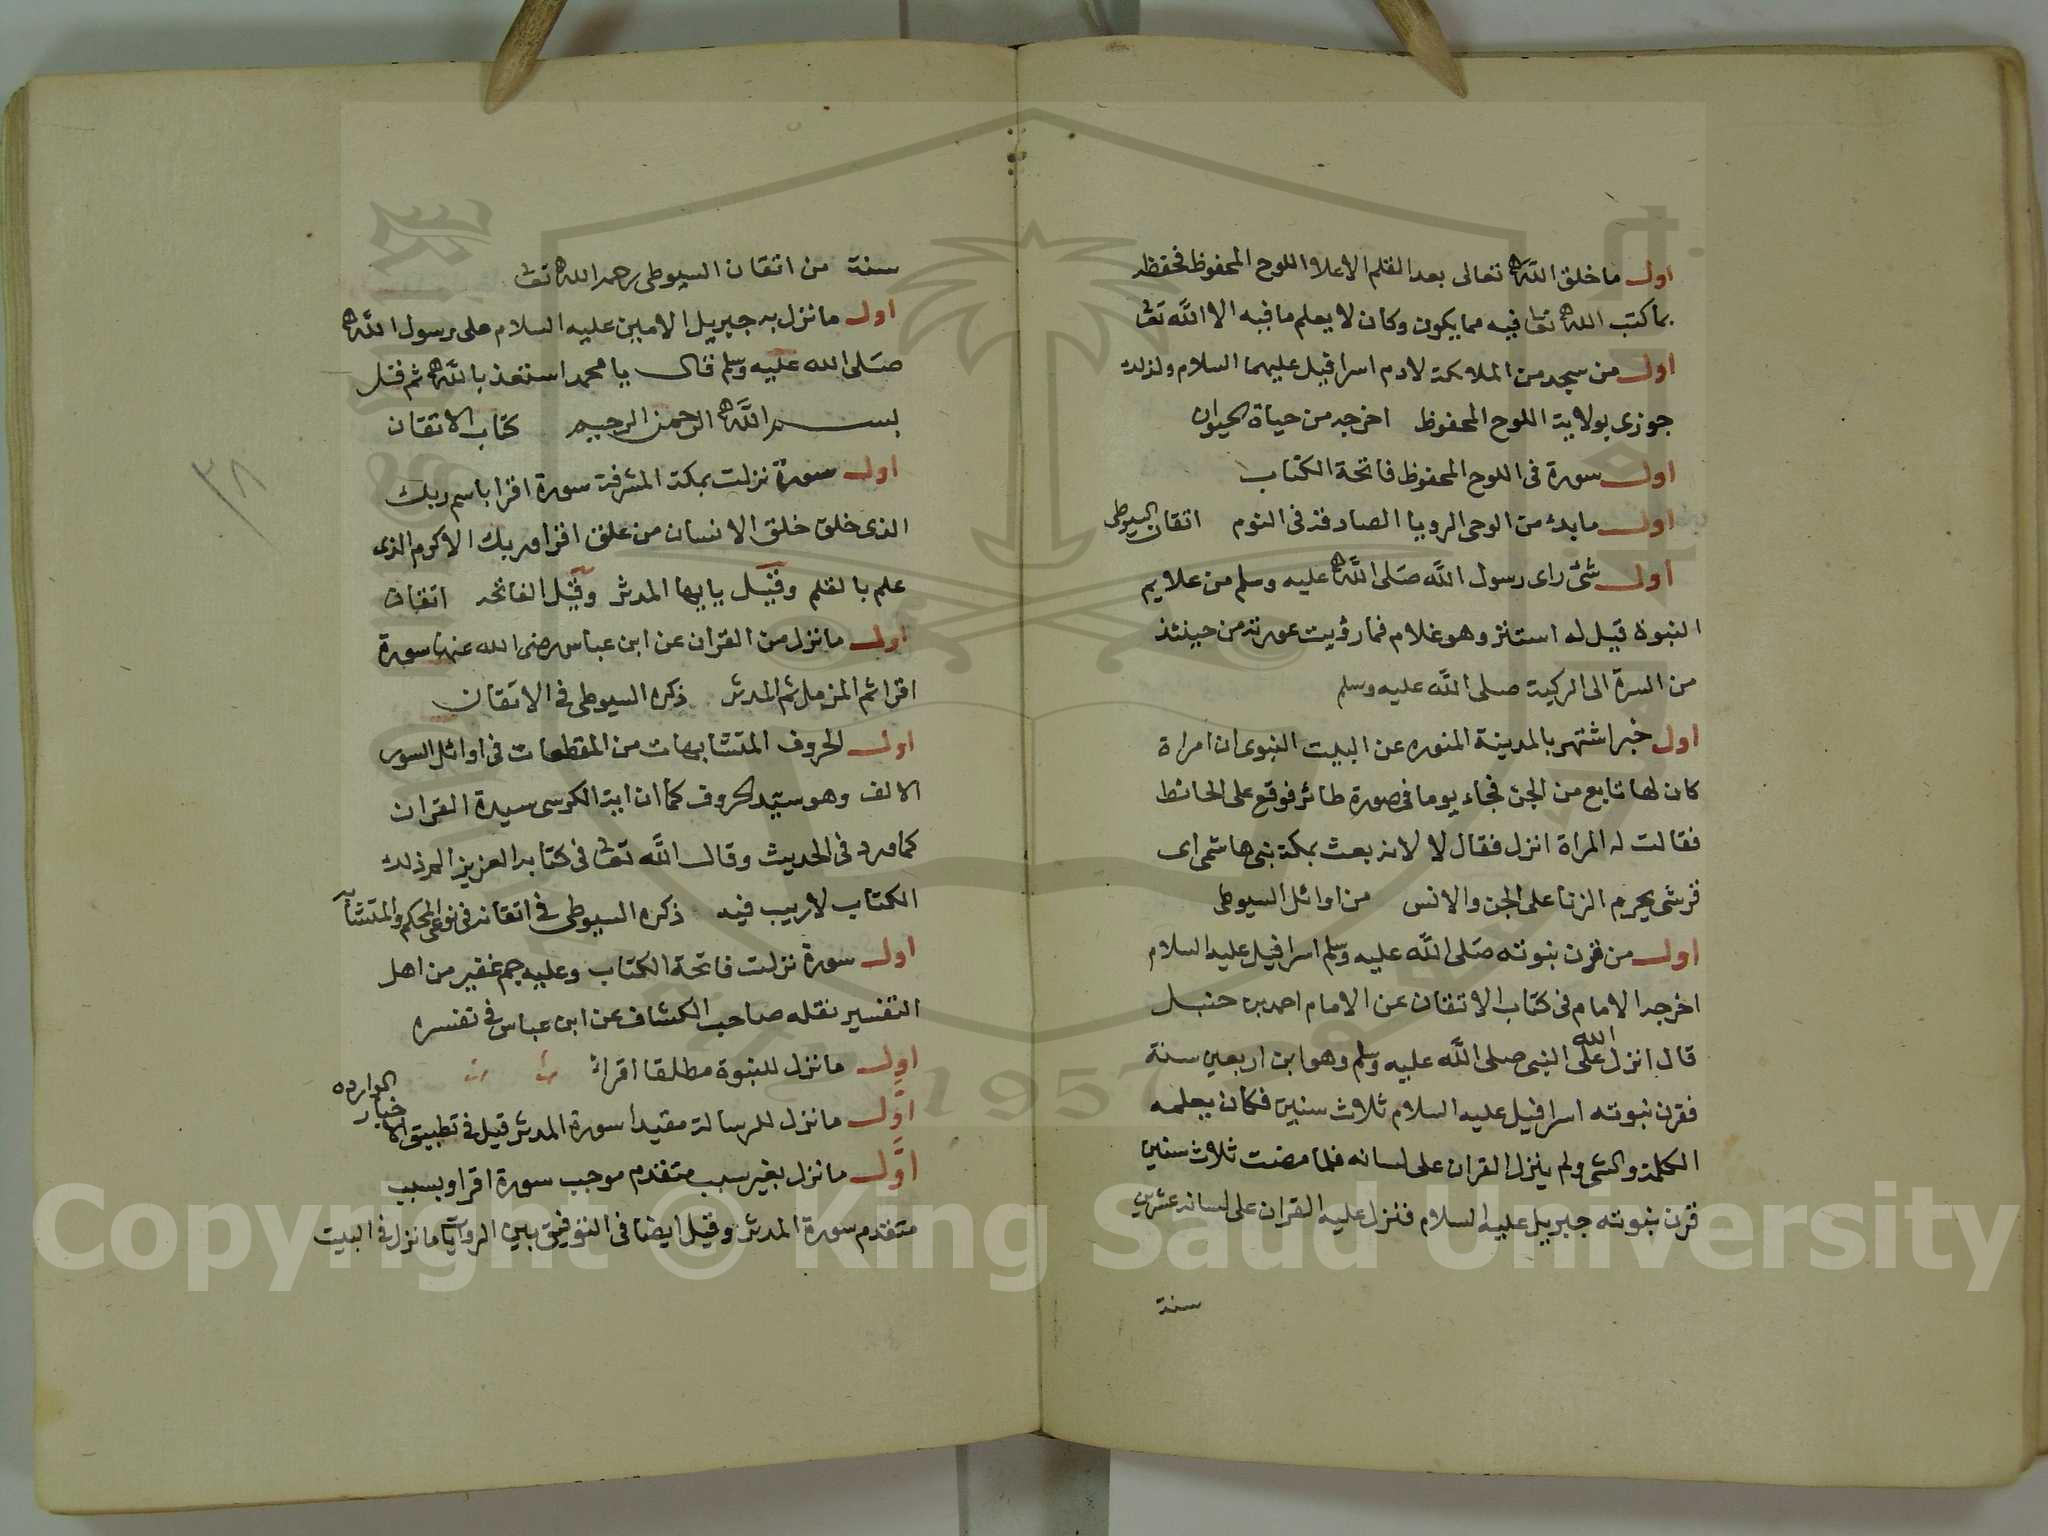 اول ما خلق الله تعالى بعد القلم الاعلا اللوح المحفوظ فحفظه
بما كتب الله تعا فيه مما يكون وكان لا يعلم ما فيه الا الله تعا
اول من سجد من الملائكة لادم اسرافيل عليهما السلام ولذلك
جوزى بولاية اللوح المحفوظ اخرجه من حياة الحيوان
اول سورة فى اللوح المحفوظ فاتحة الكتاب
اول ما بدئ من الوحى الرويا الصادقة فى النوم اتقان السيوطى
اول شئ راى رسول الله صلى الله عليه وسلم من علايم
النبوة قيل له استتر وهو غلام فما رؤيت عورته من حينئذ
من السرة الى الركبة صلى الله عليه وسلم
اول خبر اشتهر بالمدينة المنوره عن البيت النبوى ان امراة
كان لها تابع من الجن فجاء يوما فى صورة طائر فوقع على الحائط
فقالت له المراة انزل فقال لا لانه بعث بمكة بنى هاشمى اى
قرشى يحرم الزنا على الجن والانس من اوائل السيوطى
اول من قرن بنوته صلى الله عليه وسلم اسرافيل عليه السلام
اخرجه الامام فى كتاب الاتقان عن الامام احمد بن حنبل
قال انزل الله على النبى صلى الله عليه وسلم وهو ابن اربعين سنة
فقرن نبوته اسرافيل عليه السلام ثلاث سنين فكان يعلمه
الكلمة والشى ولم ينزل القران على لسانه فلما مضت ثلاث سنين
قرن بنوته جبريل عليه السلام فنزل عليه القران على لسانه عشرين
سنة
سنة من اتقان السيوطى رحمه الله تعا
اول ما نزل به جبريل الامين عليه السلام على رسول الله
صلى الله عليه وسلم قال يا محمد استعذ بالله ثم قل
بسم الله الرحمن الرحيم كتاب الاتقان
اول سورة نزلت بمكة المشرفة سورة اقرا باسم ربك
الذى خلق خلق الانسان من علق اقرا وربك الاكرم الذى
علم بالقلم وقيل يا يها المدثر وقيل الفاتحه اتقان
اول ما نزل من القران عن ابن عباس رضى الله عنهما سورة
اقرا ثم المزمل ثم المدثر ذكره السيوطى فى الاتقان
اول الحروف المتشابهات من المقطعات فى اوائل السور
الالف وهو سيد الحروف كما ان اية الكرسى سيدة القران
كما ورد فى الحديث وقال الله تعا فى كتابه العزيز الم ذلك
الكتاب لا ريب فيه ذكره السيوطى فى اتقانه فى نوعى المحكم والمتشآ
اول سورة نزلت فاتحة الكتاب وعليه جم غفير من اهل
التفسير نقله صاحب الكشاف عن ابن عباس فى تفسره
اول ما نزل للنبوة مطلقا اقرا
اول ما نزل للرسالة مقيدا سورة المدثر قيل فى تطبيق الاخبار الوارده
اول ما نزل بغير سبب متقدم موجب سورة اقرا وبسبب
متقدم سورة المدثر وقيل ايضا فى التوفيق بين الروايات ما نزل فى البيت
٣٨
Copyright © King Saud University
1957